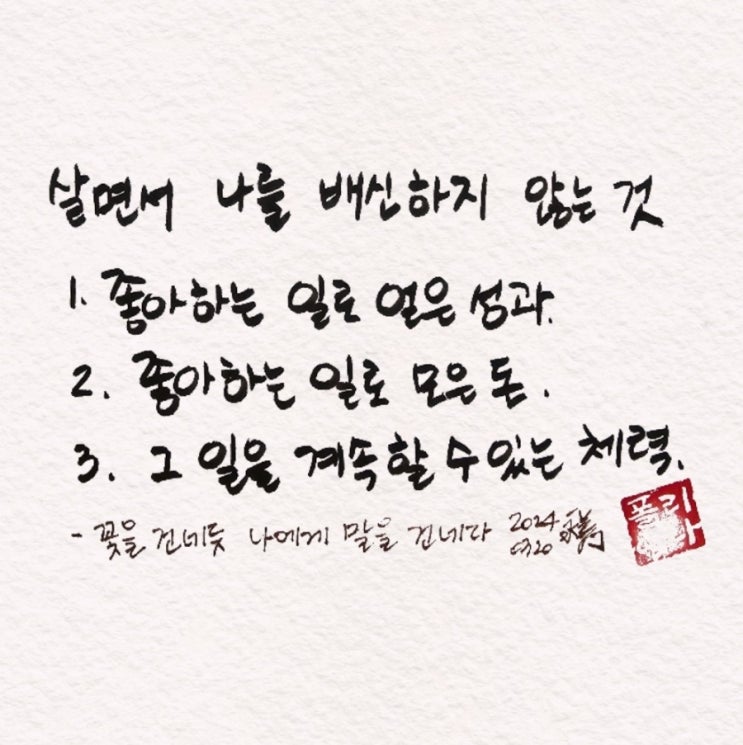 살면서 나를 배신하지 않는 것
1. 좋아하는 일로 얻은 성과.
2. 좋아하는 일로 모은 돈.
3. 그 일을 계속할 수 있는 체력.
- 꽃을 건네듯 나에게 말을 건네다 2024 0320